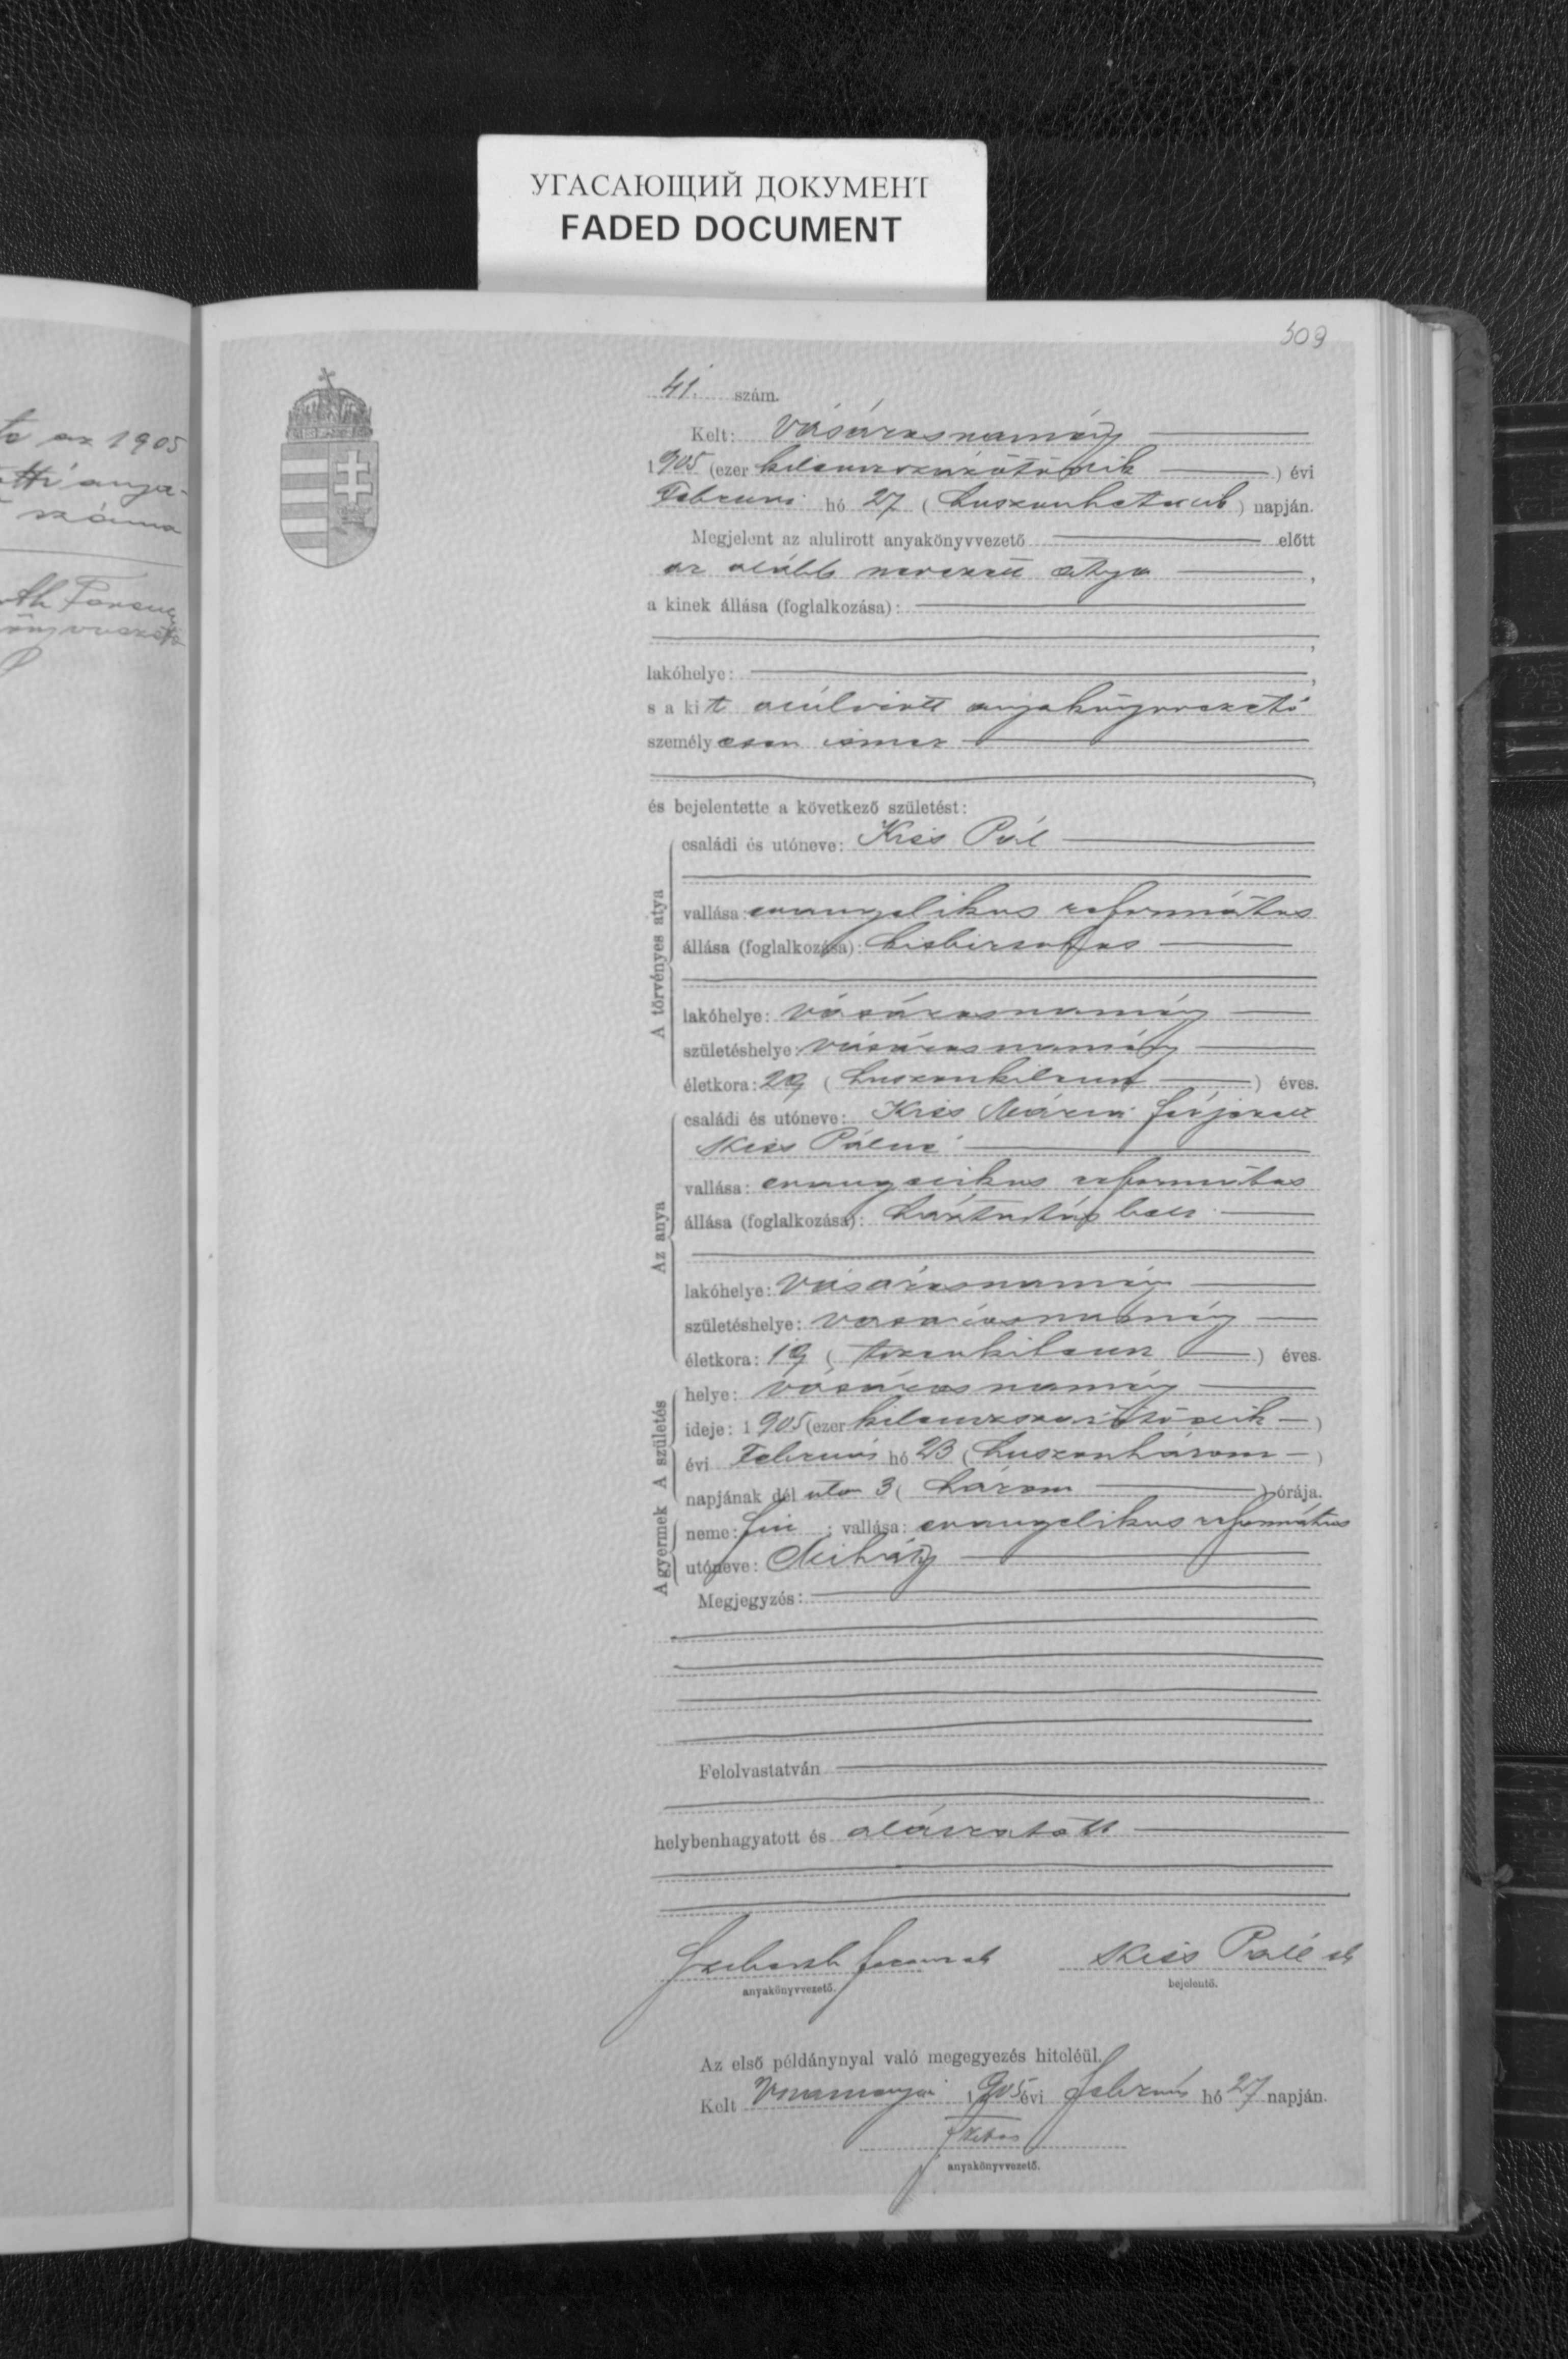 УГАСАЮЩИЙ ДОКУМЕНТ
FADED DOCUMENT
309
to az 1905
anya-
száma
th Ferenc
41. szám.
Kelt: Vásárosnamény
1905 (ezer kilencszázötödik) évi
Február hó 27 (huszonhetedik) napján.
Megjelent az alulirott anyakönyvvezető előtt
az alább nevezett atya,
a kinek állása (foglalkozása):
lakóhelye:
s a kit alúlirott anyakönyvvezető
személyesen ismer
és bejelentette a következő születést:
A törvényes atya
családi és utóneve: Kiss Pál
vallása: evangelikus református
állása (foglalkozása): kisbirtokos
lakóhelye: vásárosnamény
születéshelye: vásárosnamény
életkora: 29 (huszonkilenc) éves.
Az anya
családi és utóneve: Kiss Mária férjezett
Kiss Pálné
vallása: evangelikus református
állása (foglalkozása): háztartásbeli
lakóhelye: vásárosnamény
születéshelye: vásárosnamény
életkora: 19 (tizenkilenc) éves.
A születés
helye: vásárosnamény
ideje: 1905 (ezer kilencszázötödik)
évi Február hó 23 (huszonhárom)
napjának dél után 3 (három) órája.
A gyermek
neme: fiú; vallása: evangelikus református
utóneve: Mihály
Megjegyzés:
Felolvastatván
helybenhagyatott és aláiratott
Kiss Pál
anyakönyvvezető.
bejelentő.
Az első példánynyal való megegyezés hiteléül.
Kelt 1905 évi február hó 27 napján.
anyakönyvvezető.